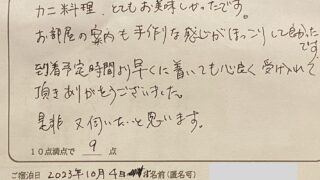 カニ料理、とてもお美味しかったです。
お部屋の案内も手作りな感じがほっこりして良かったです。
到着予定時間より早くに着いても心良く受け入れて
頂きありがとうございました。
是非又伺いたいと思います。
10点満点で 9 点
ご宿泊日 2023年10月4日 お名前(匿名可)